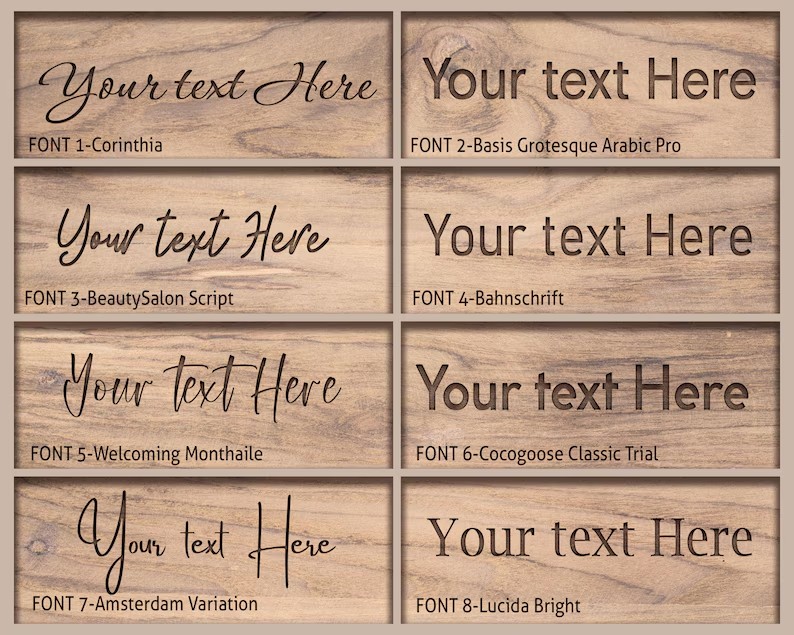 Your text Here
FONT 1-Corinthia
Your text Here
FONT 2-Basis Grotesque Arabic Pro
Your text Here
FONT 3-BeautySalon Script
Your text Here
FONT 4-Bahnschrift
Your text Here
FONT 5-Welcoming Monthaile
Your text Here
FONT 6-Cocogoose Classic Trial
Your text Here
FONT 7-Amsterdam Variation
Your text Here
FONT 8-Lucida Bright